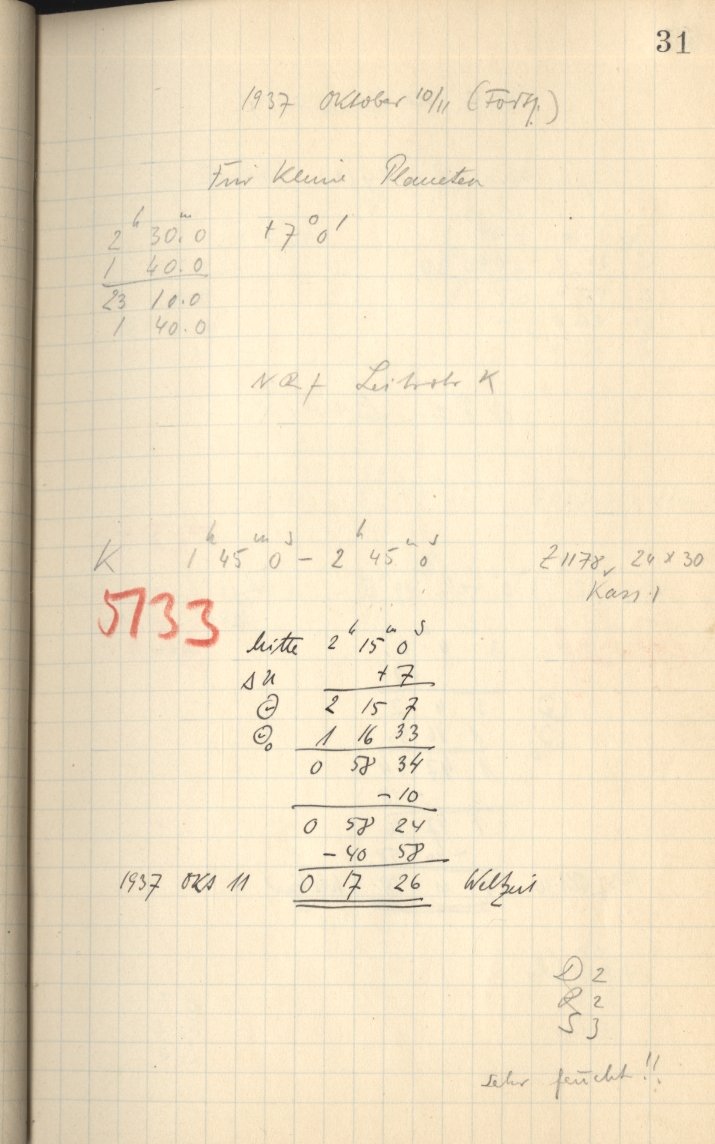 31
1937 Oktober 10/11 (Forts.)
Für Kleine Planeten
2ʰ 30ᵐ.0 +7° 0'
1 40.0
23 10.0
1 40.0
Leitrohr K
K 1ʰ 45ᵐ 0ˢ – 2ʰ 45ᵐ 0ˢ Z1178, 24 x 30
Kass. 1
5133
Mitte 2ʰ 15ᵐ 0ˢ
Δu +7
Θ 2 15 7
Θ₀ 1 16 33
0 58 34
– 10
0 58 24
– 40 58
1937 Okt 11 0 17 26 Weltzeit
D 2
R 2
S 3
sehr feucht!!